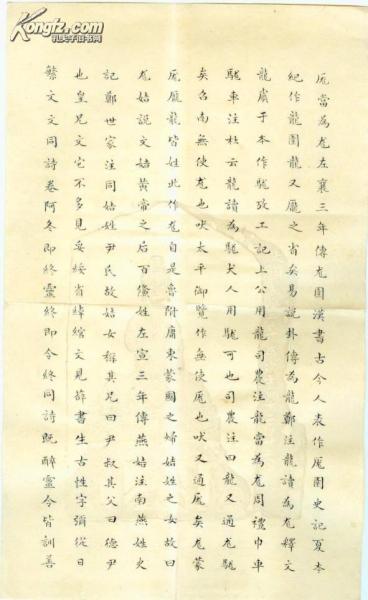 Kongfz.com
孔夫子旧书网
厖當為尨左襄三年傳尨圉漢書古今人表作厖圉史記夏本
紀作龍圉龍又厖之省矣易說卦傳為龍鄭注龍讀為尨釋文
龍虞干本作駹攷工記上公用龍司農注龍當為尨周禮巾車
駹車注杜云龍讀為駹犬人用駹可也司農注曰龍又通尨駹
矣召南無使尨也吠太平御覽作無使厖也吠又通厖矣尨蒙
厖龍皆姓此作尨自是魯附庸東蒙國之婦姞姓之女故曰
尨姞說文姞黃帝之后百鯈姓左宣三年傳燕姞注南燕姓史
記鄭世家注同姞姓尹氏故姞女稱其兄曰尹叔其父曰德尹
也皇兄文它不多見妥綏省綽綰文見薛書生古性字彌從日
繁文文同詩卷阿冬即終靈終即令終同詩既醉靈令皆訓善